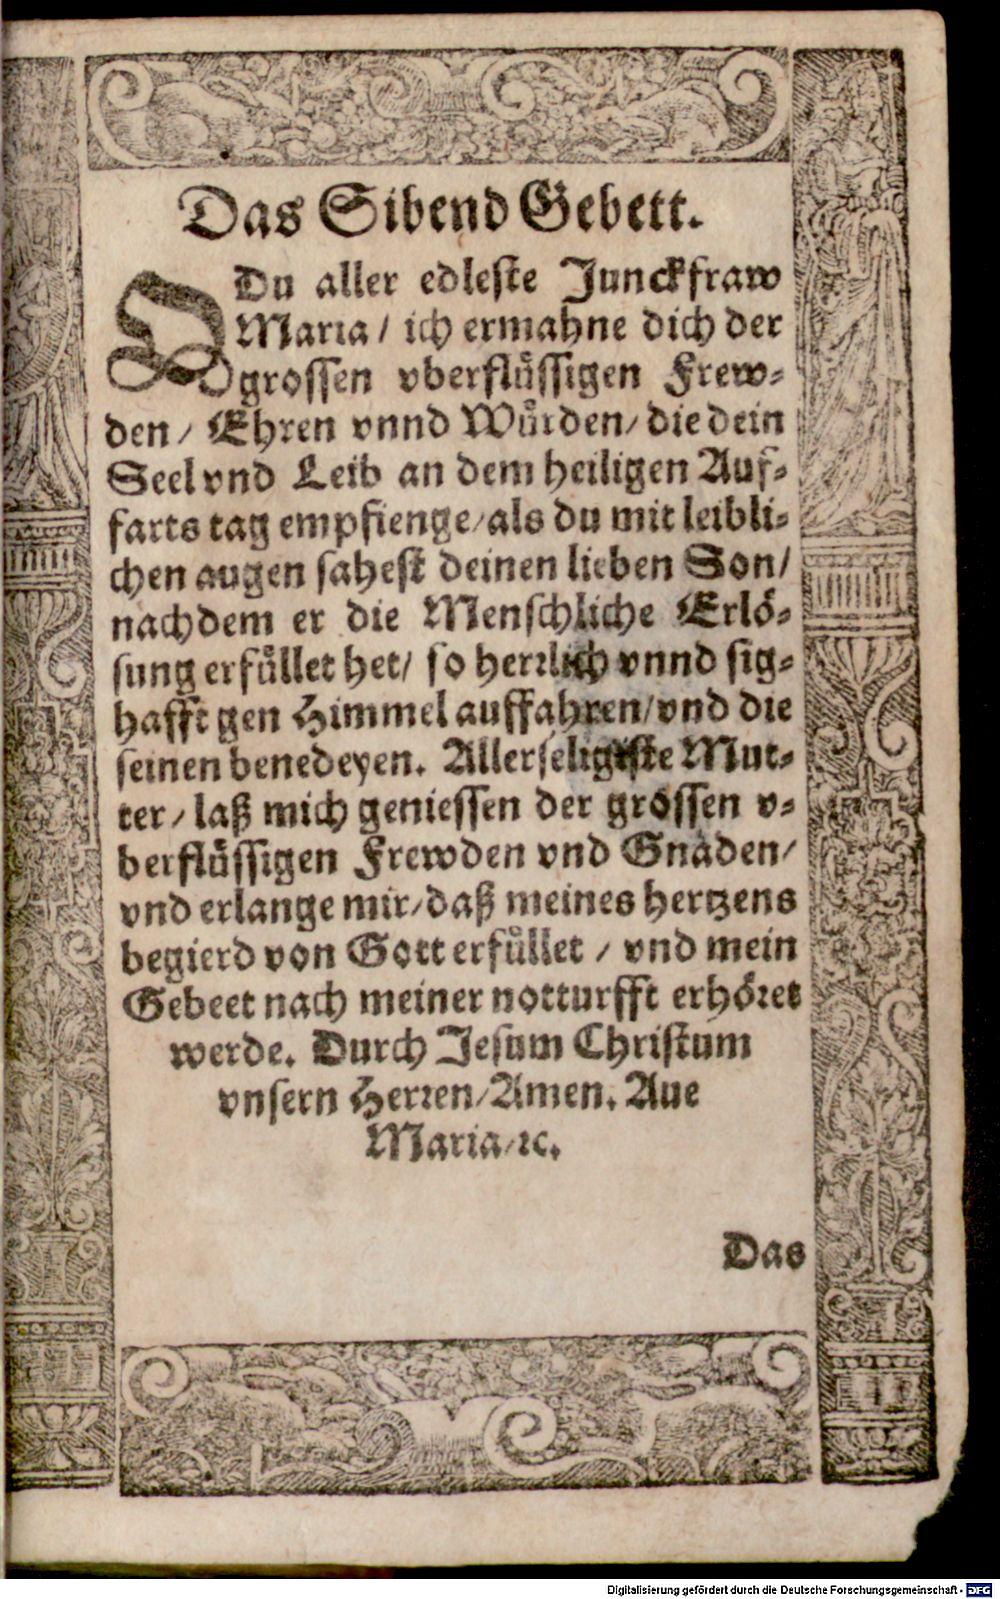 Das Sibend Gebett.
O Du aller edleste Junckfraw
Maria / ich ermahne dich der
grossen vberflüssigen Frew⸗
den / Ehren vnnd Würden / die dein
Seel vnd Leib an dem heiligen Auf⸗
farts tag empfienge / als du mit leibli⸗
chen augen sahest deinen lieben Son /
nachdem er die Menschliche Erlö⸗
sung erfüllet het / so herrlich vnnd sig⸗
hafft gen Himmel auffahren / vnd die
seinen benedeyen. Allerseligiste Mut⸗
ter / laß mich geniessen der grossen v⸗
berflüssigen Frewden vnd Gnaden /
vnd erlange mir / daß meines hertzens
begierd von Gott erfüllet / vnd mein
Gebeet nach meiner notturfft erhöret
werde. Durch Jesum Christum
vnsern Herren / Amen. Aue
Maria / ꝛc.
Das
Digitalisierung gefördert durch die Deutsche Forschungsgemeinschaft - DFG